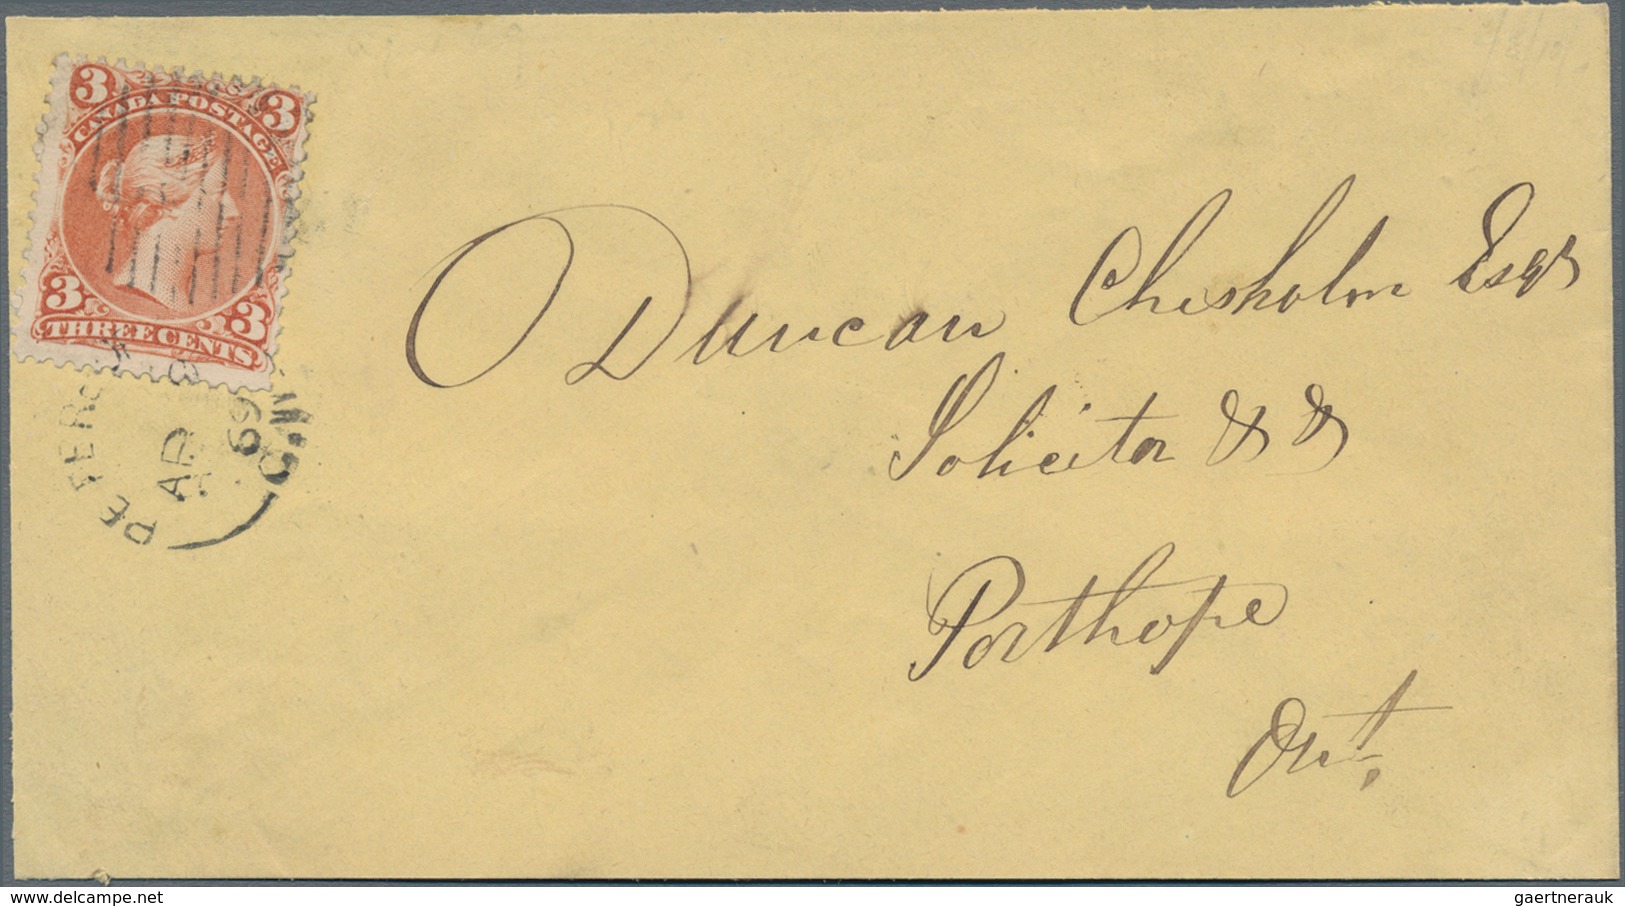 3 3
CANADA POSTAGE
3 3
THREE CENTS
AP
69
Duncan Chisholm Esqr
Solicitor &c &c
Porthope
Ont.
delcampe.net
gaertnerauk